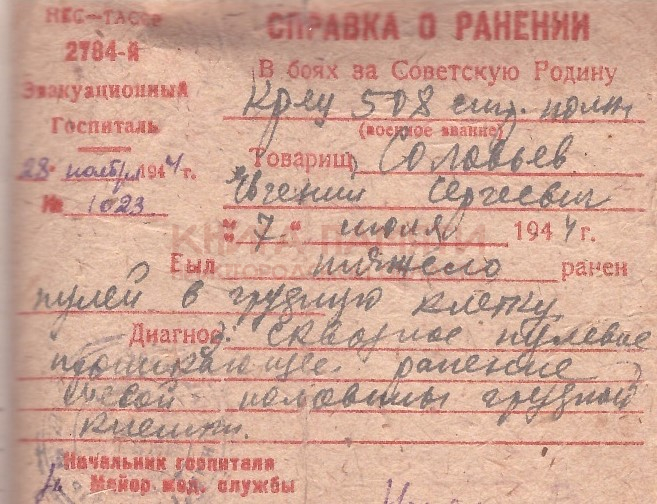 НКС—ТАССР
2784-й
Эвакуационный
Госпиталь
28 ноября 1944 г.
№ 1023
СПРАВКА О РАНЕНИИ
В боях за Советскую Родину
Кр-ец 508 стр. полк
(военное звание)
Товарищ Соловьев
Евгений Сергеевич
"7" июля 1944 г.
КНИГА ПАМЯТИ
Был тяжело ранен
пулей в грудную клетку
Диагноз: сквозное пулевое
проникающее ранение
левой половины грудной
клетки.
Начальник госпиталя
Майор мед. службы